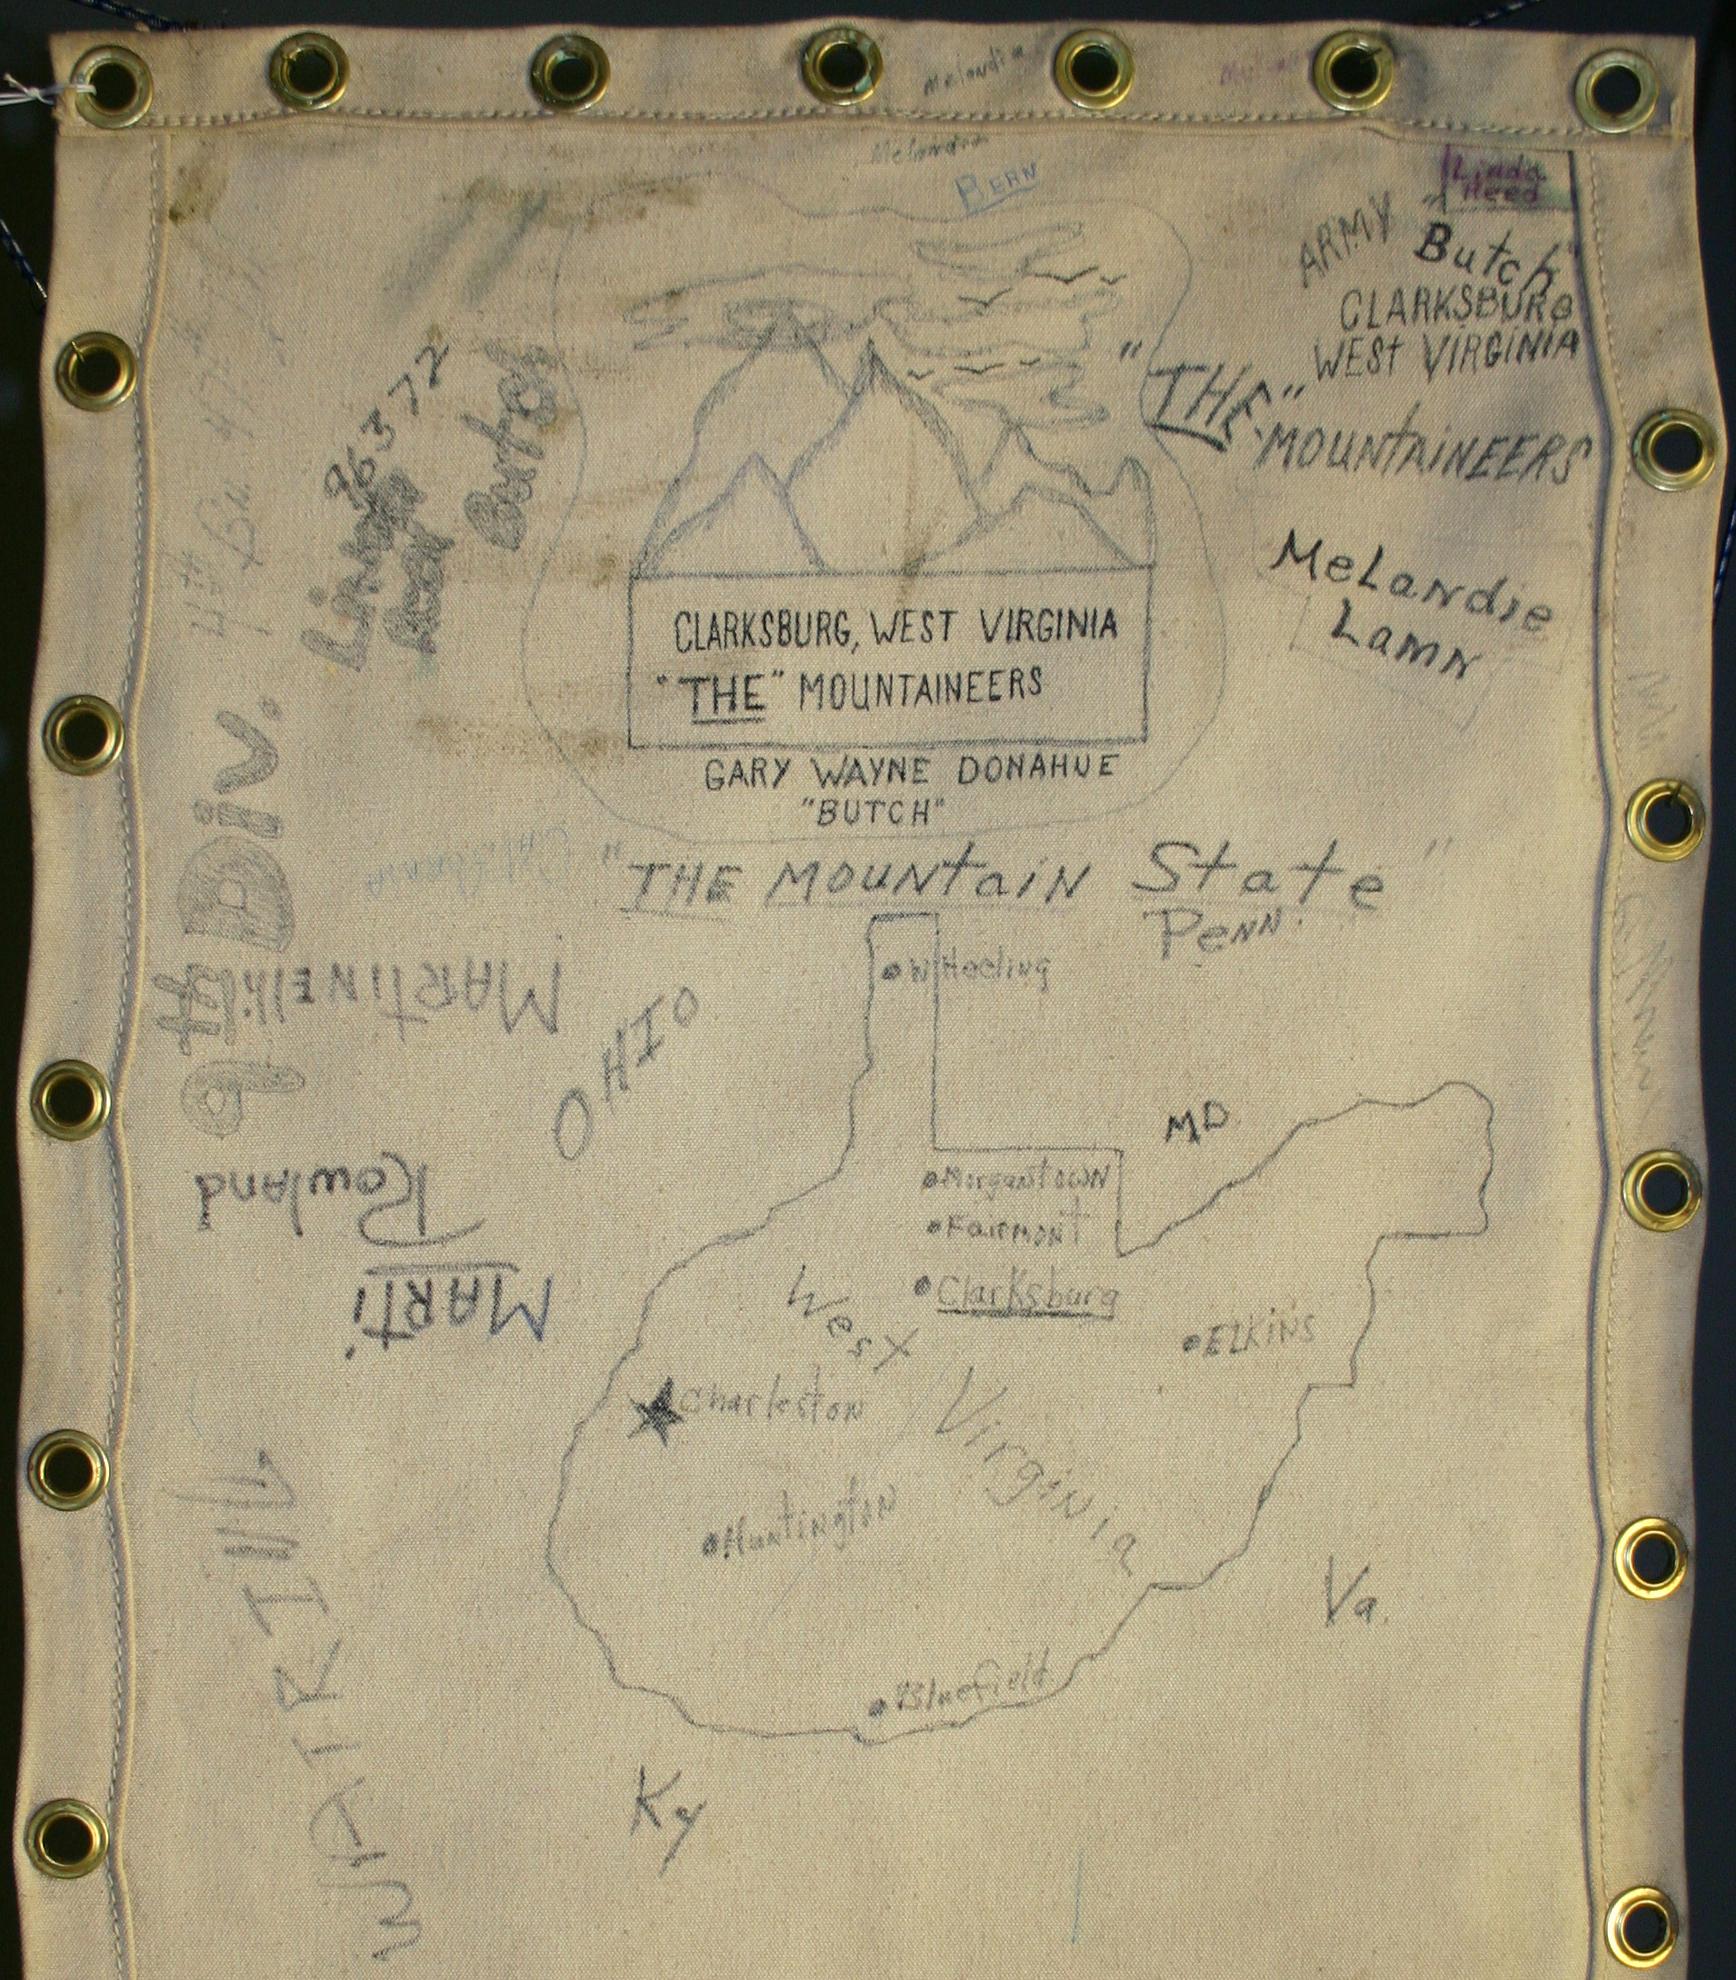 Melandia
Melandia
BERN
Linda
Heed
ARMY
"Butch"
CLARKSBURG
WEST VIRGINIA
"THE" MOUNTAINEERS
96372
Linda
Butch
MeLandie
Lamn
4th
CLARKSBURG, WEST VIRGINIA
"THE" MOUNTAINEERS
GARY WAYNE DONAHUE
"BUTCH"
9th Div.
"THE MOUNtaiN State"
PeNN.
WHeeling
MARTiNElli
OHIO
MD
MorgantowN
FairmoNT
Rowland
Clarksburg
MARTi
ElKiNS
West Virginia
Charleston
HuntingtoN
Va.
Bluefield
Ky